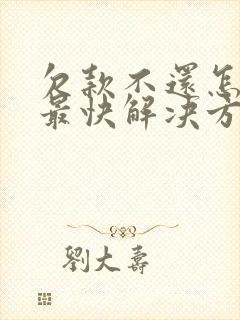 欠款不還怎
最快解决方
劉大壽